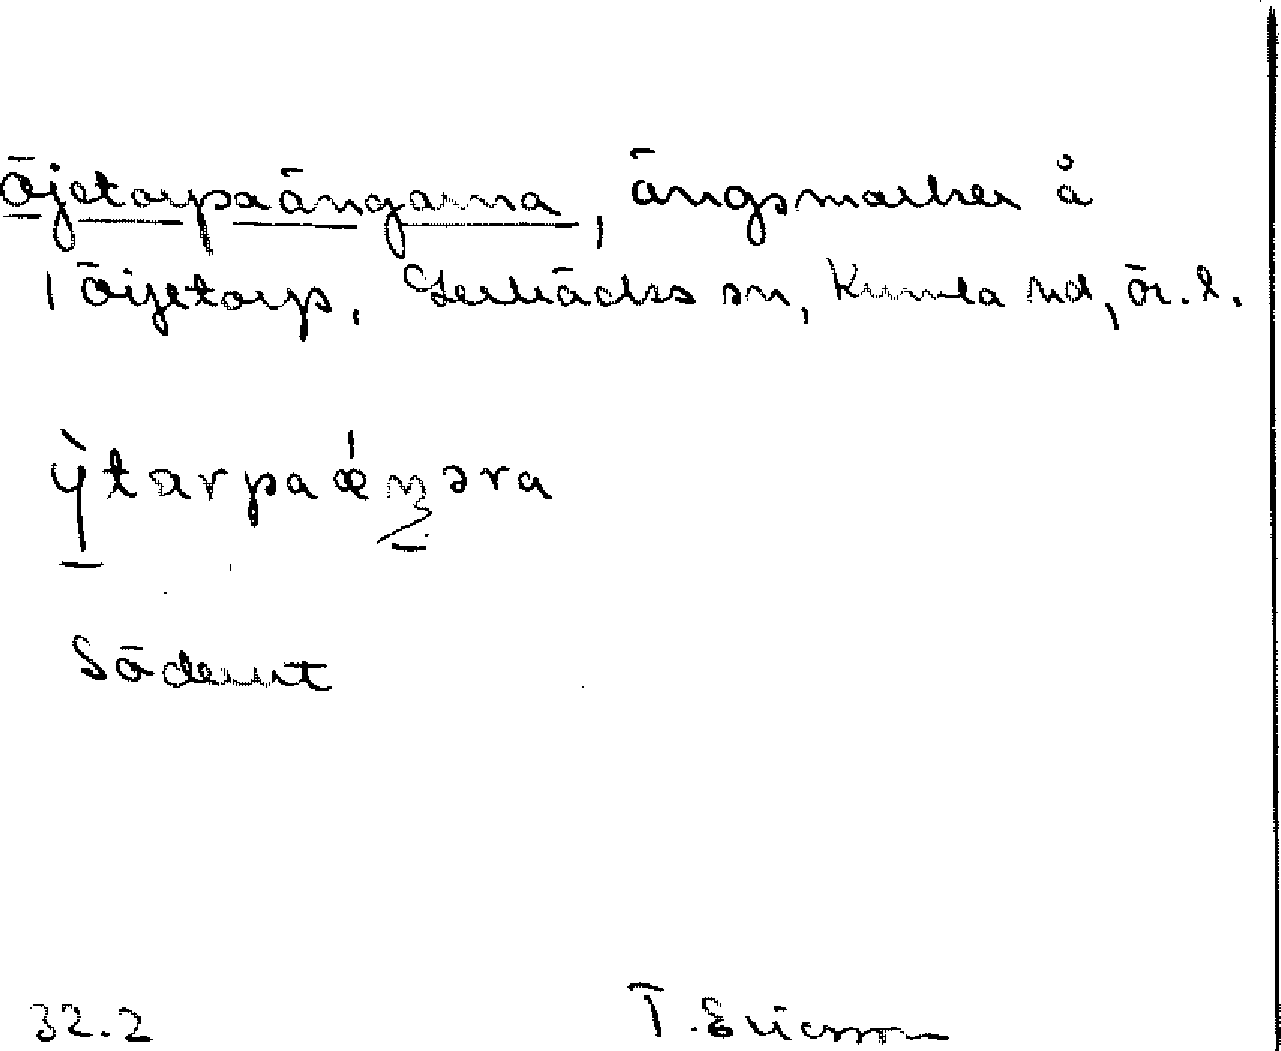 Öjetorpaängarna, ängsmarker å
1 Öijetorp, Lerbäcks sn, Kumla hd, Ör. l.
ỳtarpaæ̍ŋəra
Södernt
32.2
T. Ericsson